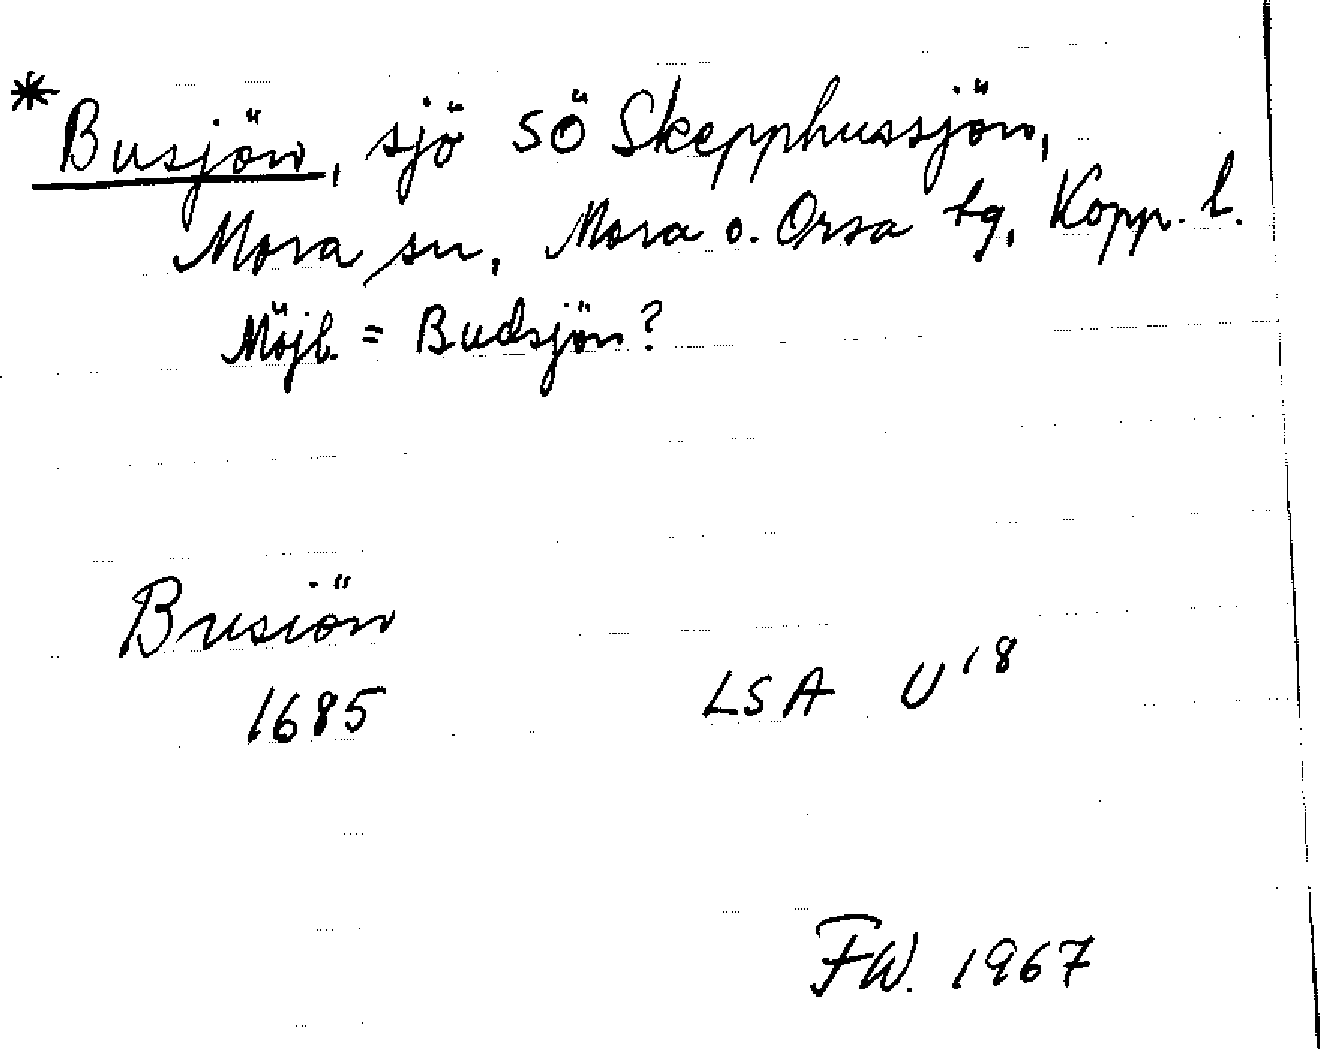 *Busjön, sjö SÖ Skepphussjön,
Mora sn, Mora o. Orsa tg, Kopp. l.
Möjl. = Budsjön?
Busiön
1685 LSA U 18
FW. 1967